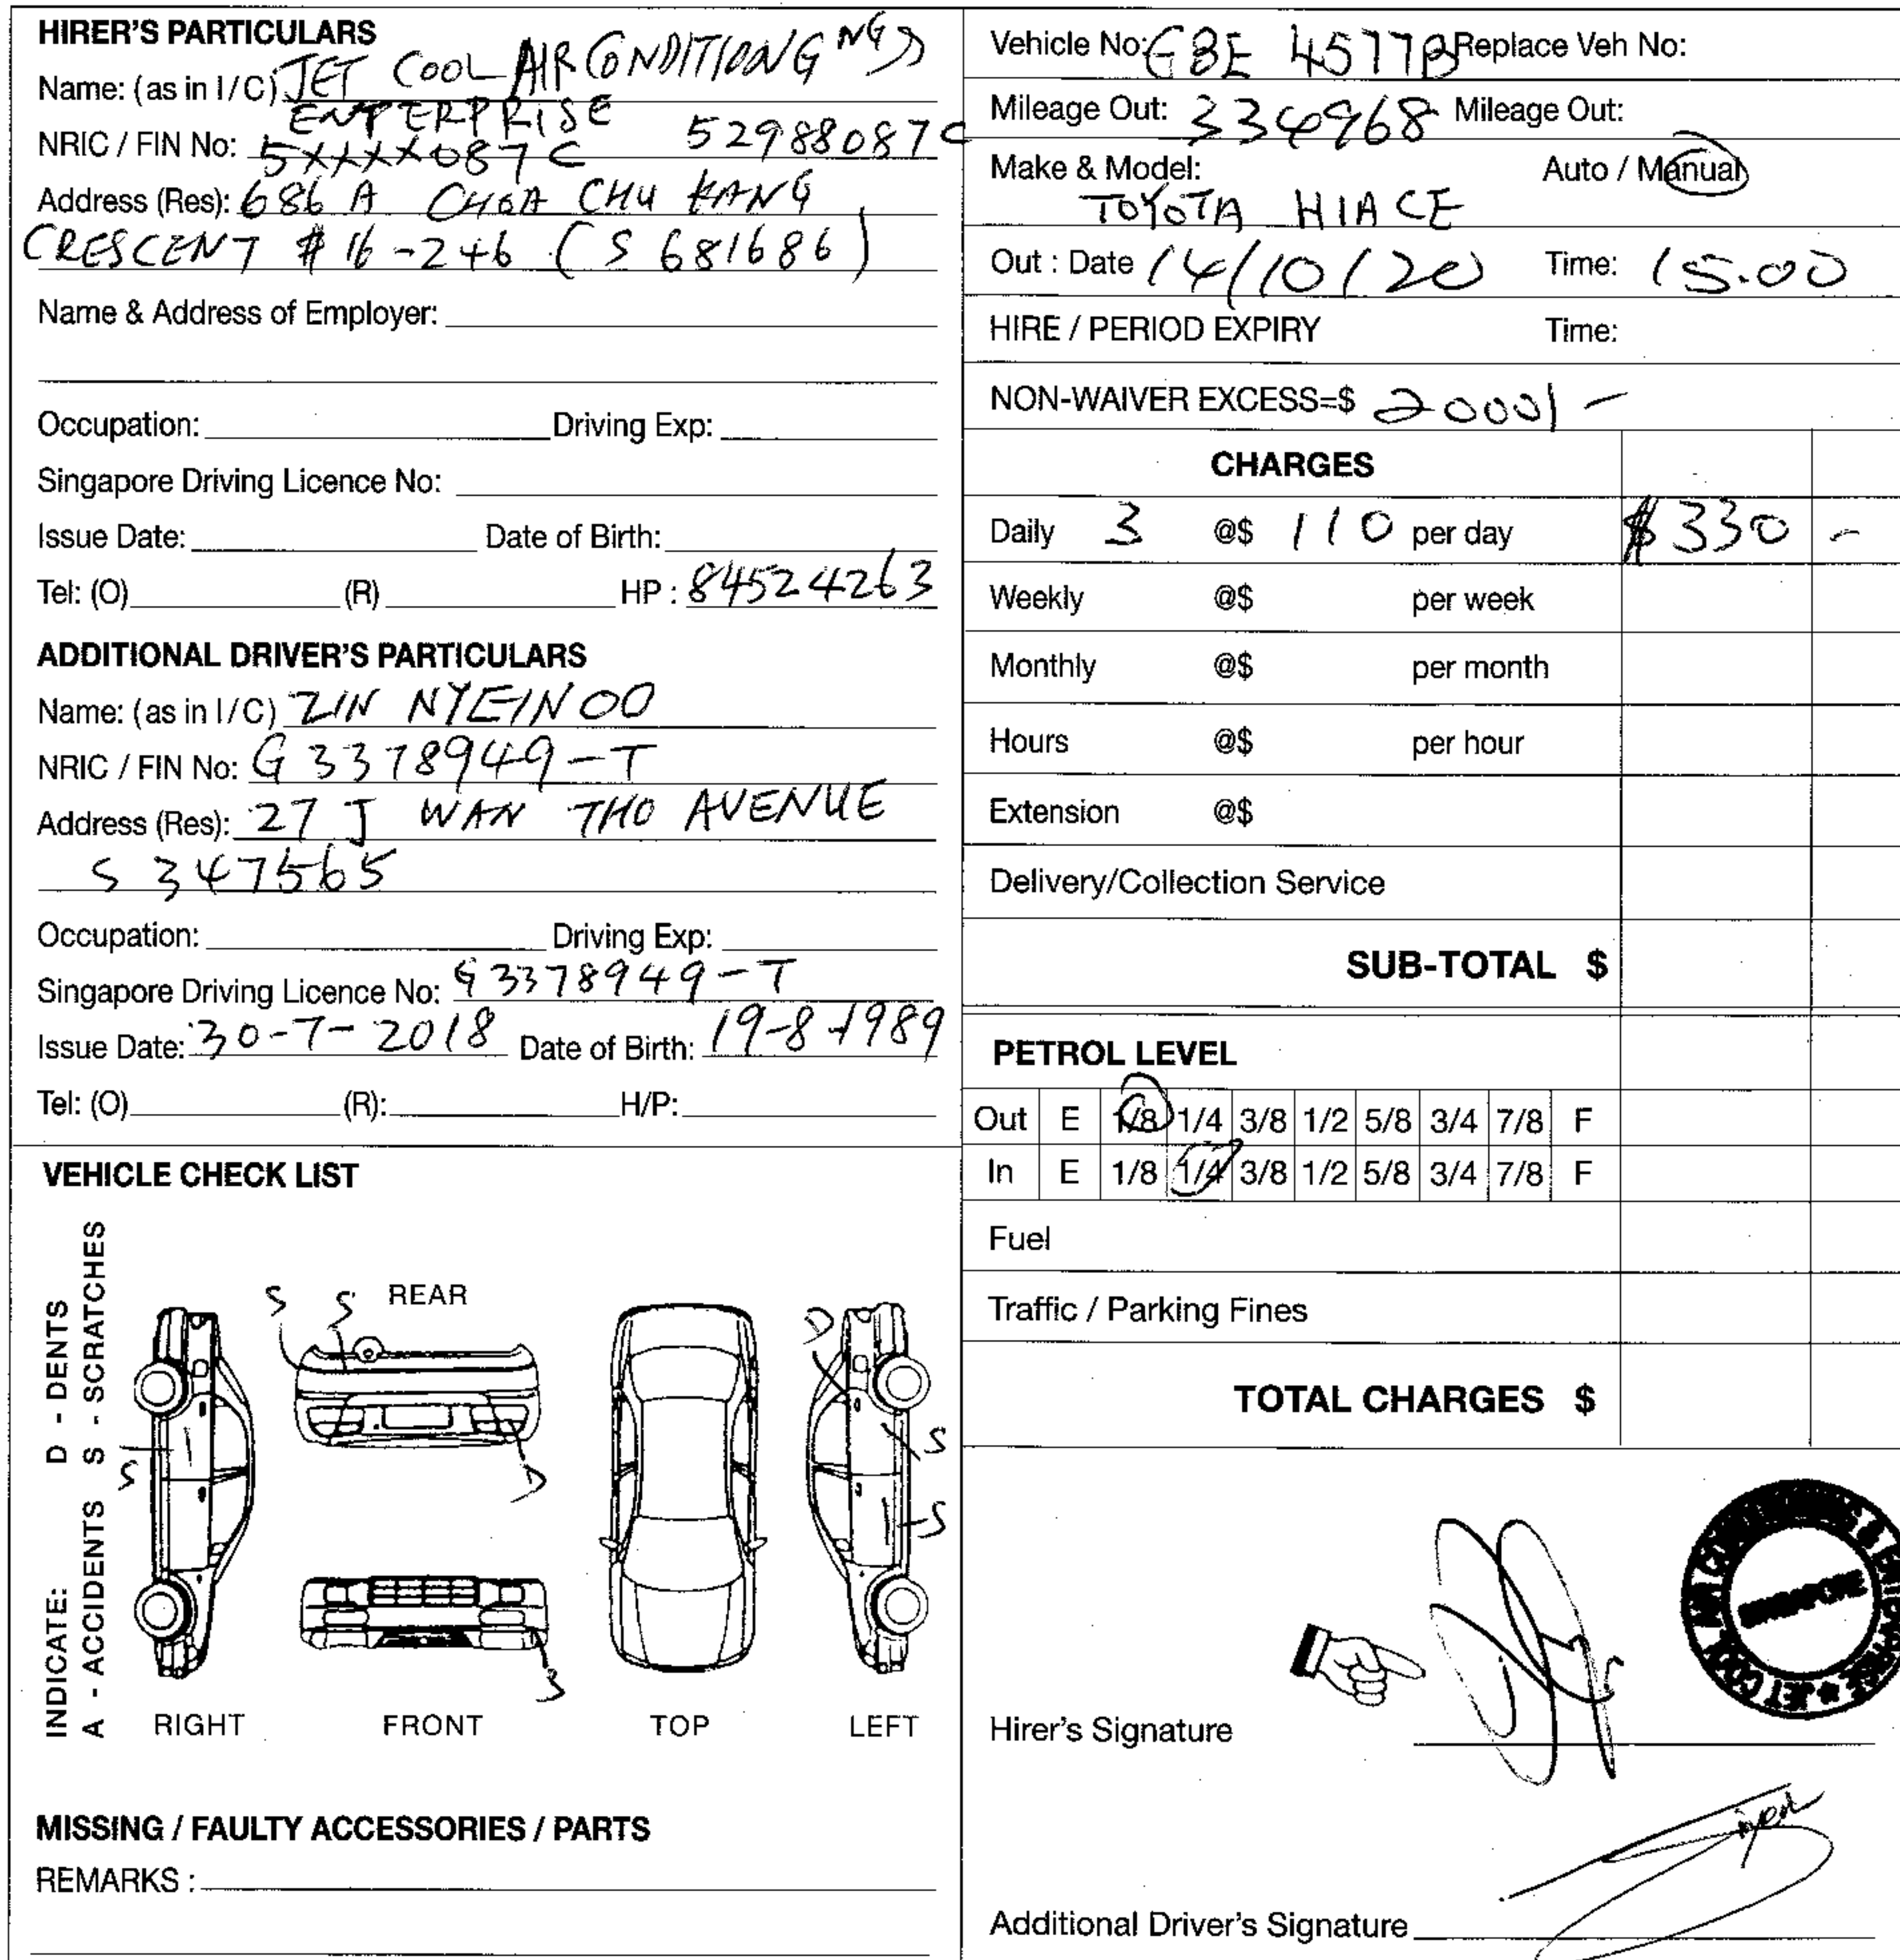 HIRER'S PARTICULARS
Name: (as in I/C) JET COOL AIR CONDITIONG NG &
ENTERPRISE
NRIC / FIN No: 5XXXX087C 52988087C
Address (Res): 686 A CHOA CHU KANG
CRESCENT #16-246 (S 681686)
Name & Address of Employer:
Occupation: Driving Exp:
Singapore Driving Licence No:
Issue Date: Date of Birth:
Tel: (O) (R) HP : 84524263
ADDITIONAL DRIVER'S PARTICULARS
Name: (as in I/C) ZIN NYEIN OO
NRIC / FIN No: G 3378949-T
Address (Res): 27 J WAN THO AVENUE
S 347565
Occupation: Driving Exp:
Singapore Driving Licence No: G3378949-T
Issue Date: 30-7-2018 Date of Birth: 19-8-1989
Tel: (O) (R): H/P:
VEHICLE CHECK LIST
INDICATE: D - DENTS
A - ACCIDENTS S - SCRATCHES
S S REAR D
S D S
S
RIGHT FRONT TOP LEFT
MISSING / FAULTY ACCESSORIES / PARTS
REMARKS :
Vehicle No: GBE 4577B Replace Veh No:
Mileage Out: 334968 Mileage Out:
Make & Model: Auto / Manual
TOYOTA HIACE
Out : Date 14/10/20 Time: 15.00
HIRE / PERIOD EXPIRY Time:
NON-WAIVER EXCESS=$ 2000/-
CHARGES
Daily 3 @$ 110 per day $330 -
Weekly @$ per week
Monthly @$ per month
Hours @$ per hour
Extension @$
Delivery/Collection Service
SUB-TOTAL $
PETROL LEVEL
Out E 1/8 1/4 3/8 1/2 5/8 3/4 7/8 F
In E 1/8 1/4 3/8 1/2 5/8 3/4 7/8 F
Fuel
Traffic / Parking Fines
TOTAL CHARGES $
SINGAPORE
Hirer's Signature
Additional Driver's Signature